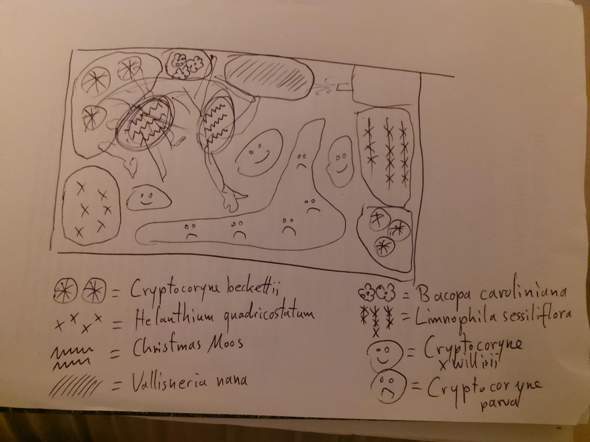 = Cryptocoryne beckettii
= Helanthium quadricostatum
= Christmas Moos
= Vallisneria nana
= Bacopa caroliniana
= Limnophila sessiliflora
= Cryptocoryne
x willisii
= Cryptocoryne
parva